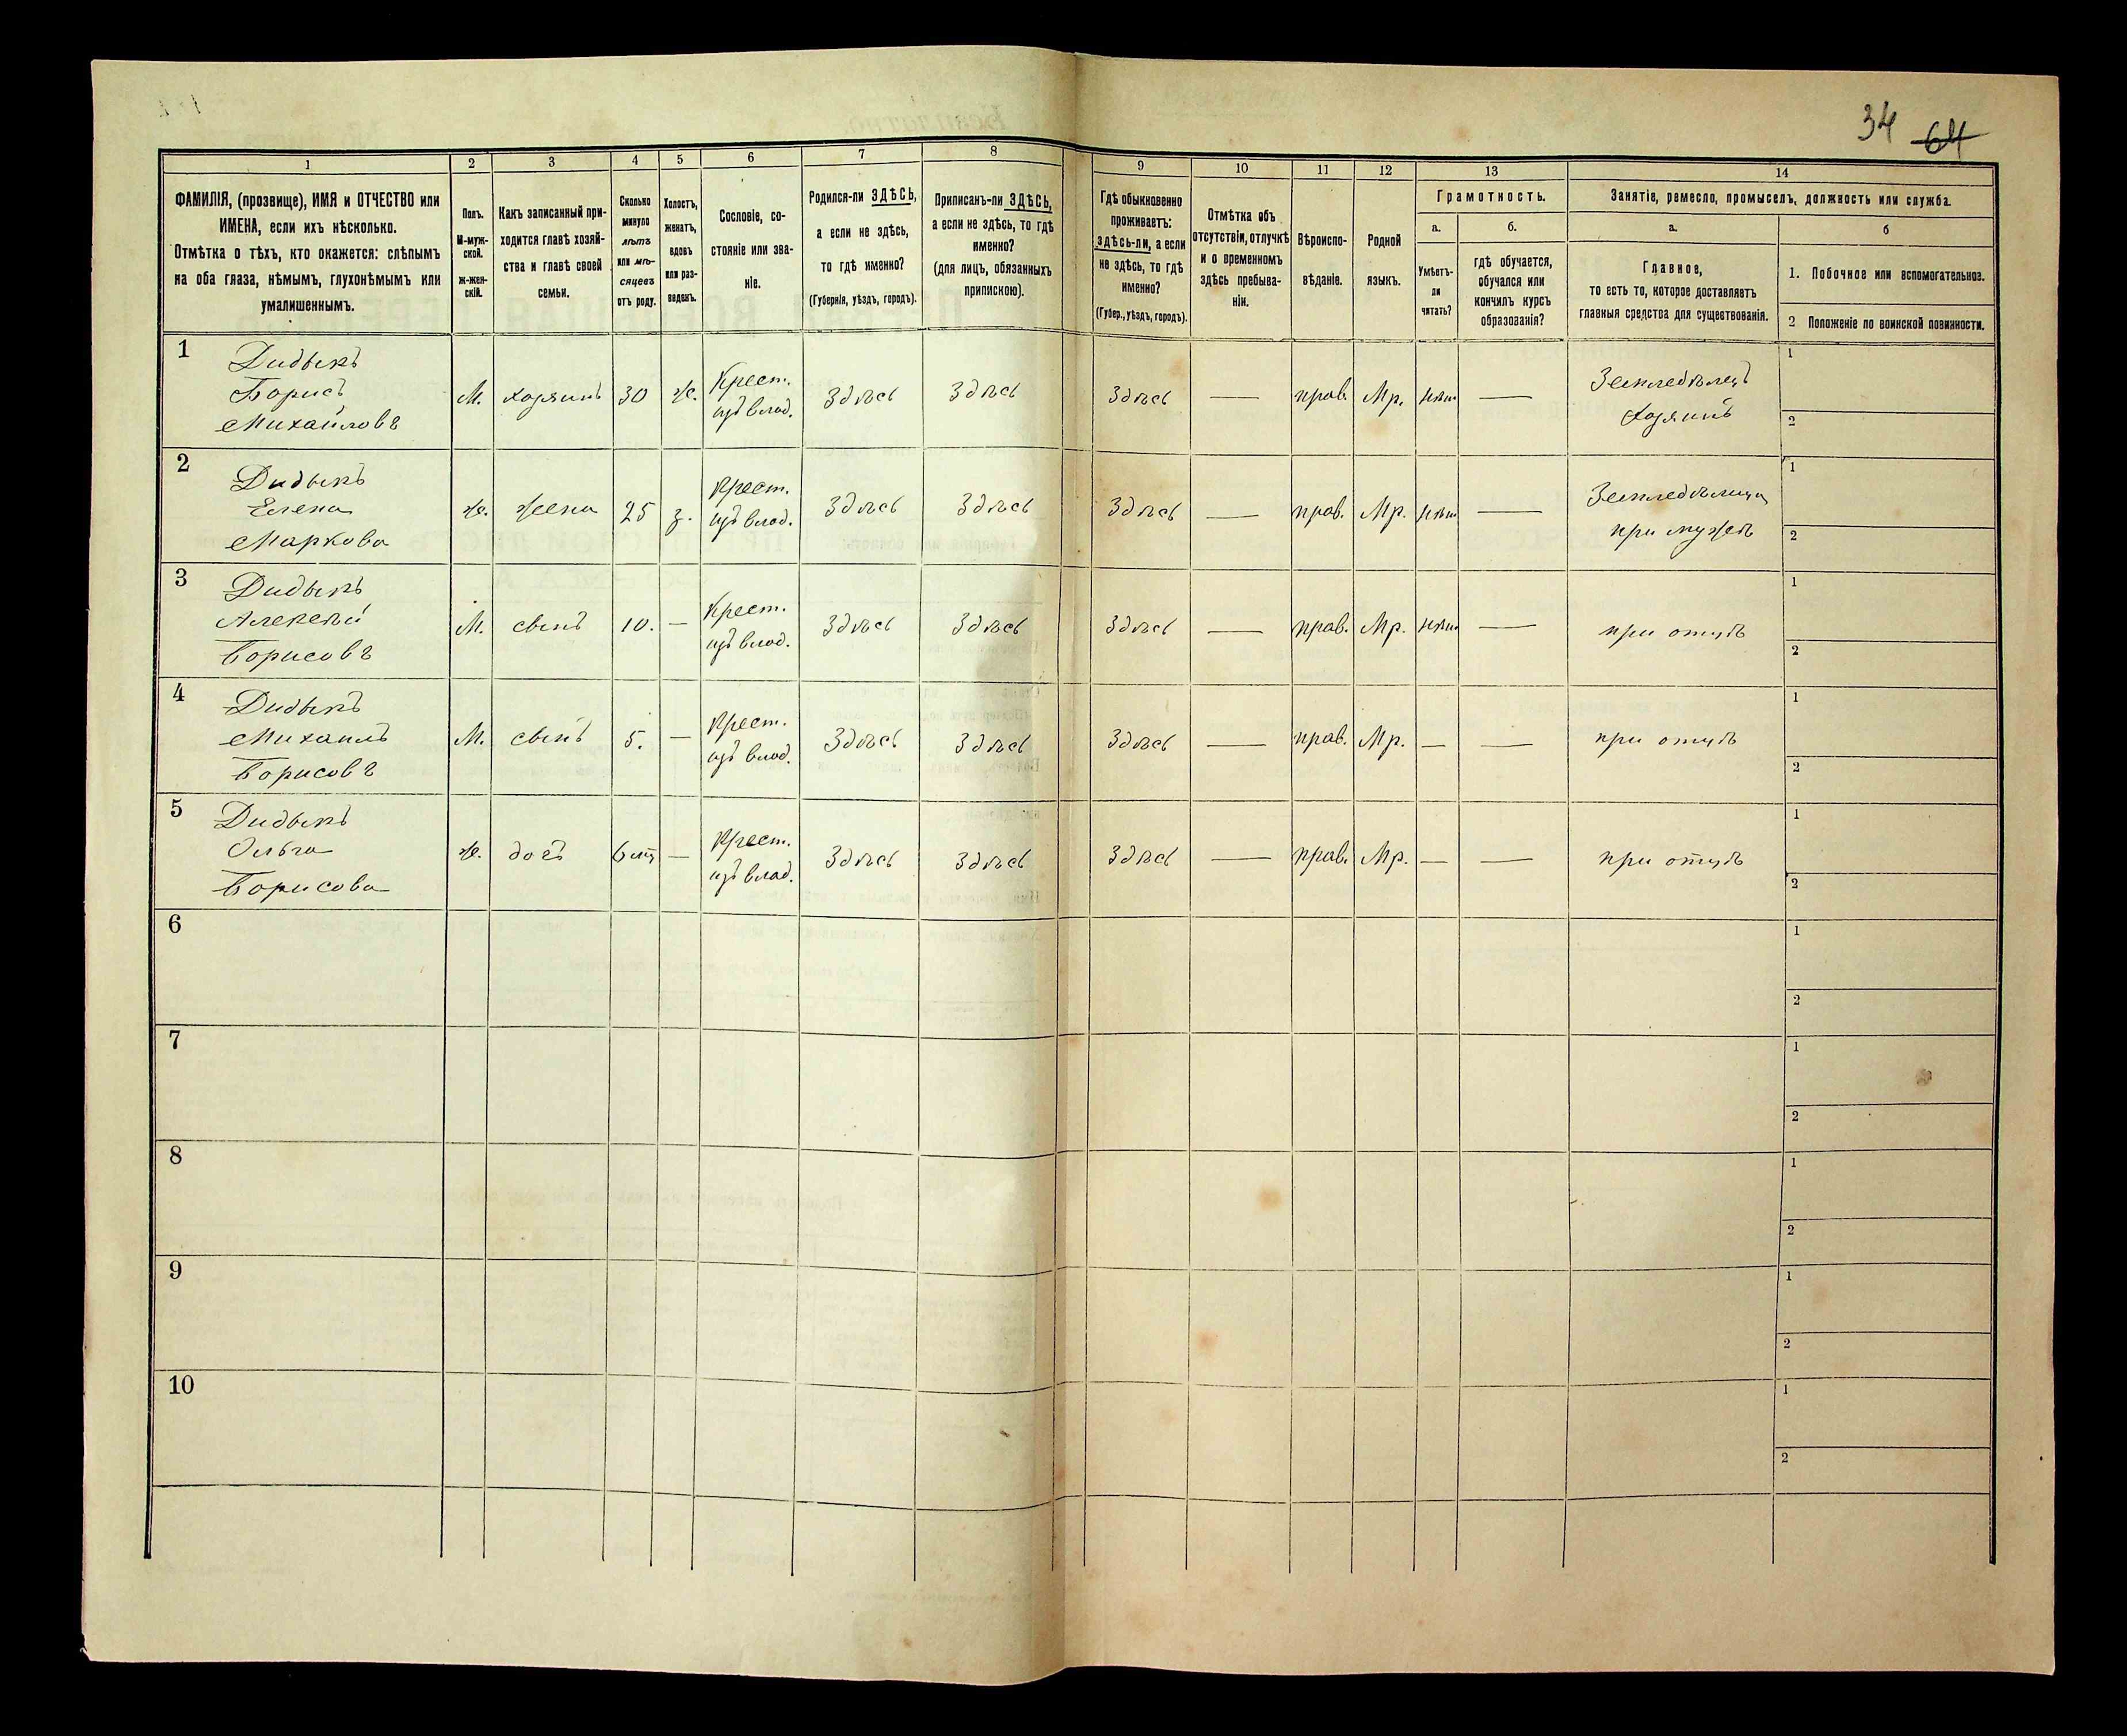 34 64
1 2 3 4 5 6 7 8 9 10 11 12 13 14
ФАМИЛІЯ, (прозвище), ИМЯ и ОТЧЕСТВО или
ИМЕНА, если ихъ нѣсколько.
Отмѣтка о тѣхъ, кто окажется: слѣпымъ
на оба глаза, нѣмымъ, глухонѣмымъ или
умалишеннымъ.
Полъ.
М-муж-
ской.
Ж-жен-
скій.
Какъ записанный при-
ходится главѣ хозяй-
ства и главѣ своей
семьи.
Сколько
минуло
лѣтъ
или мѣ-
сяцевъ
отъ роду.
Холостъ,
женатъ,
вдовъ
или раз-
веденъ.
Сословіе, со-
стояніе или зва-
ніе.
Родился-ли ЗДѢСЬ,
а если не здѣсь,
то гдѣ именно?
(Губернія, уѣздъ, городъ).
Приписанъ-ли ЗДѢСЬ,
а если не здѣсь, то гдѣ
именно?
(для лицъ, обязанныхъ
припискою).
Гдѣ обыкновенно
проживаетъ:
здѣсь-ли, а если
не здѣсь, то гдѣ
именно?
(Губер., уѣздъ, городъ).
Отмѣтка объ
отсутствіи, отлучкѣ
и о временномъ
здѣсь пребыва-
ніи.
Вѣроиспо-
вѣданіе.
Родной
языкъ.
Грамотность.
а.
Умѣетъ-
ли
читать?
б.
гдѣ обучается,
обучался или
кончилъ курсъ
образованія?
Занятіе, ремесло, промыселъ, должность или служба.
а.
Главное,
то есть то, которое доставляетъ
главныя средства для существованія.
б
1. Побочное или вспомогательное.
2 Положеніе по воинской повинности.
1 Дидыкъ
Борисъ
Михайловъ
М. хозяинъ 30 ж. Крест.
изъ влад.
Здѣсь Здѣсь Здѣсь — прав. Мр. нѣт —
Земледѣлецъ
Хозяинъ
1
2
2 Дидыкъ
Елена
Маркова
ж. жена 25 з. Крест.
изъ влад.
Здѣсь Здѣсь Здѣсь — прав. Мр. нѣт —
Земледѣлица
при мужѣ
1
2
3 Дидыкъ
Алексѣй
Борисовъ
М. сынъ 10. — Крест.
изъ влад.
Здѣсь Здѣсь Здѣсь — прав. Мр. нѣт —
при отцѣ
1
2
4 Дидыкъ
Михаилъ
Борисовъ
М. сынъ 5. — Крест.
изъ влад.
Здѣсь Здѣсь Здѣсь — прав. Мр. — —
при отцѣ
1
2
5 Дидыкъ
Ольга
Борисова
ж. дочъ 6 мц — Крест.
изъ влад.
Здѣсь Здѣсь Здѣсь — прав. Мр. — —
при отцѣ
1
2
6
1
2
7
1
2
8
1
2
9
1
2
10
1
2